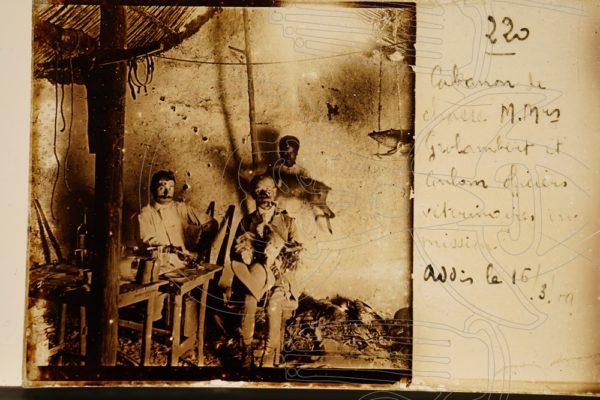 220
Cabanon de
chasse M.Mrs
Jolambert et
officiers
vétérinaires en
mission
Addis le 16/
.3/